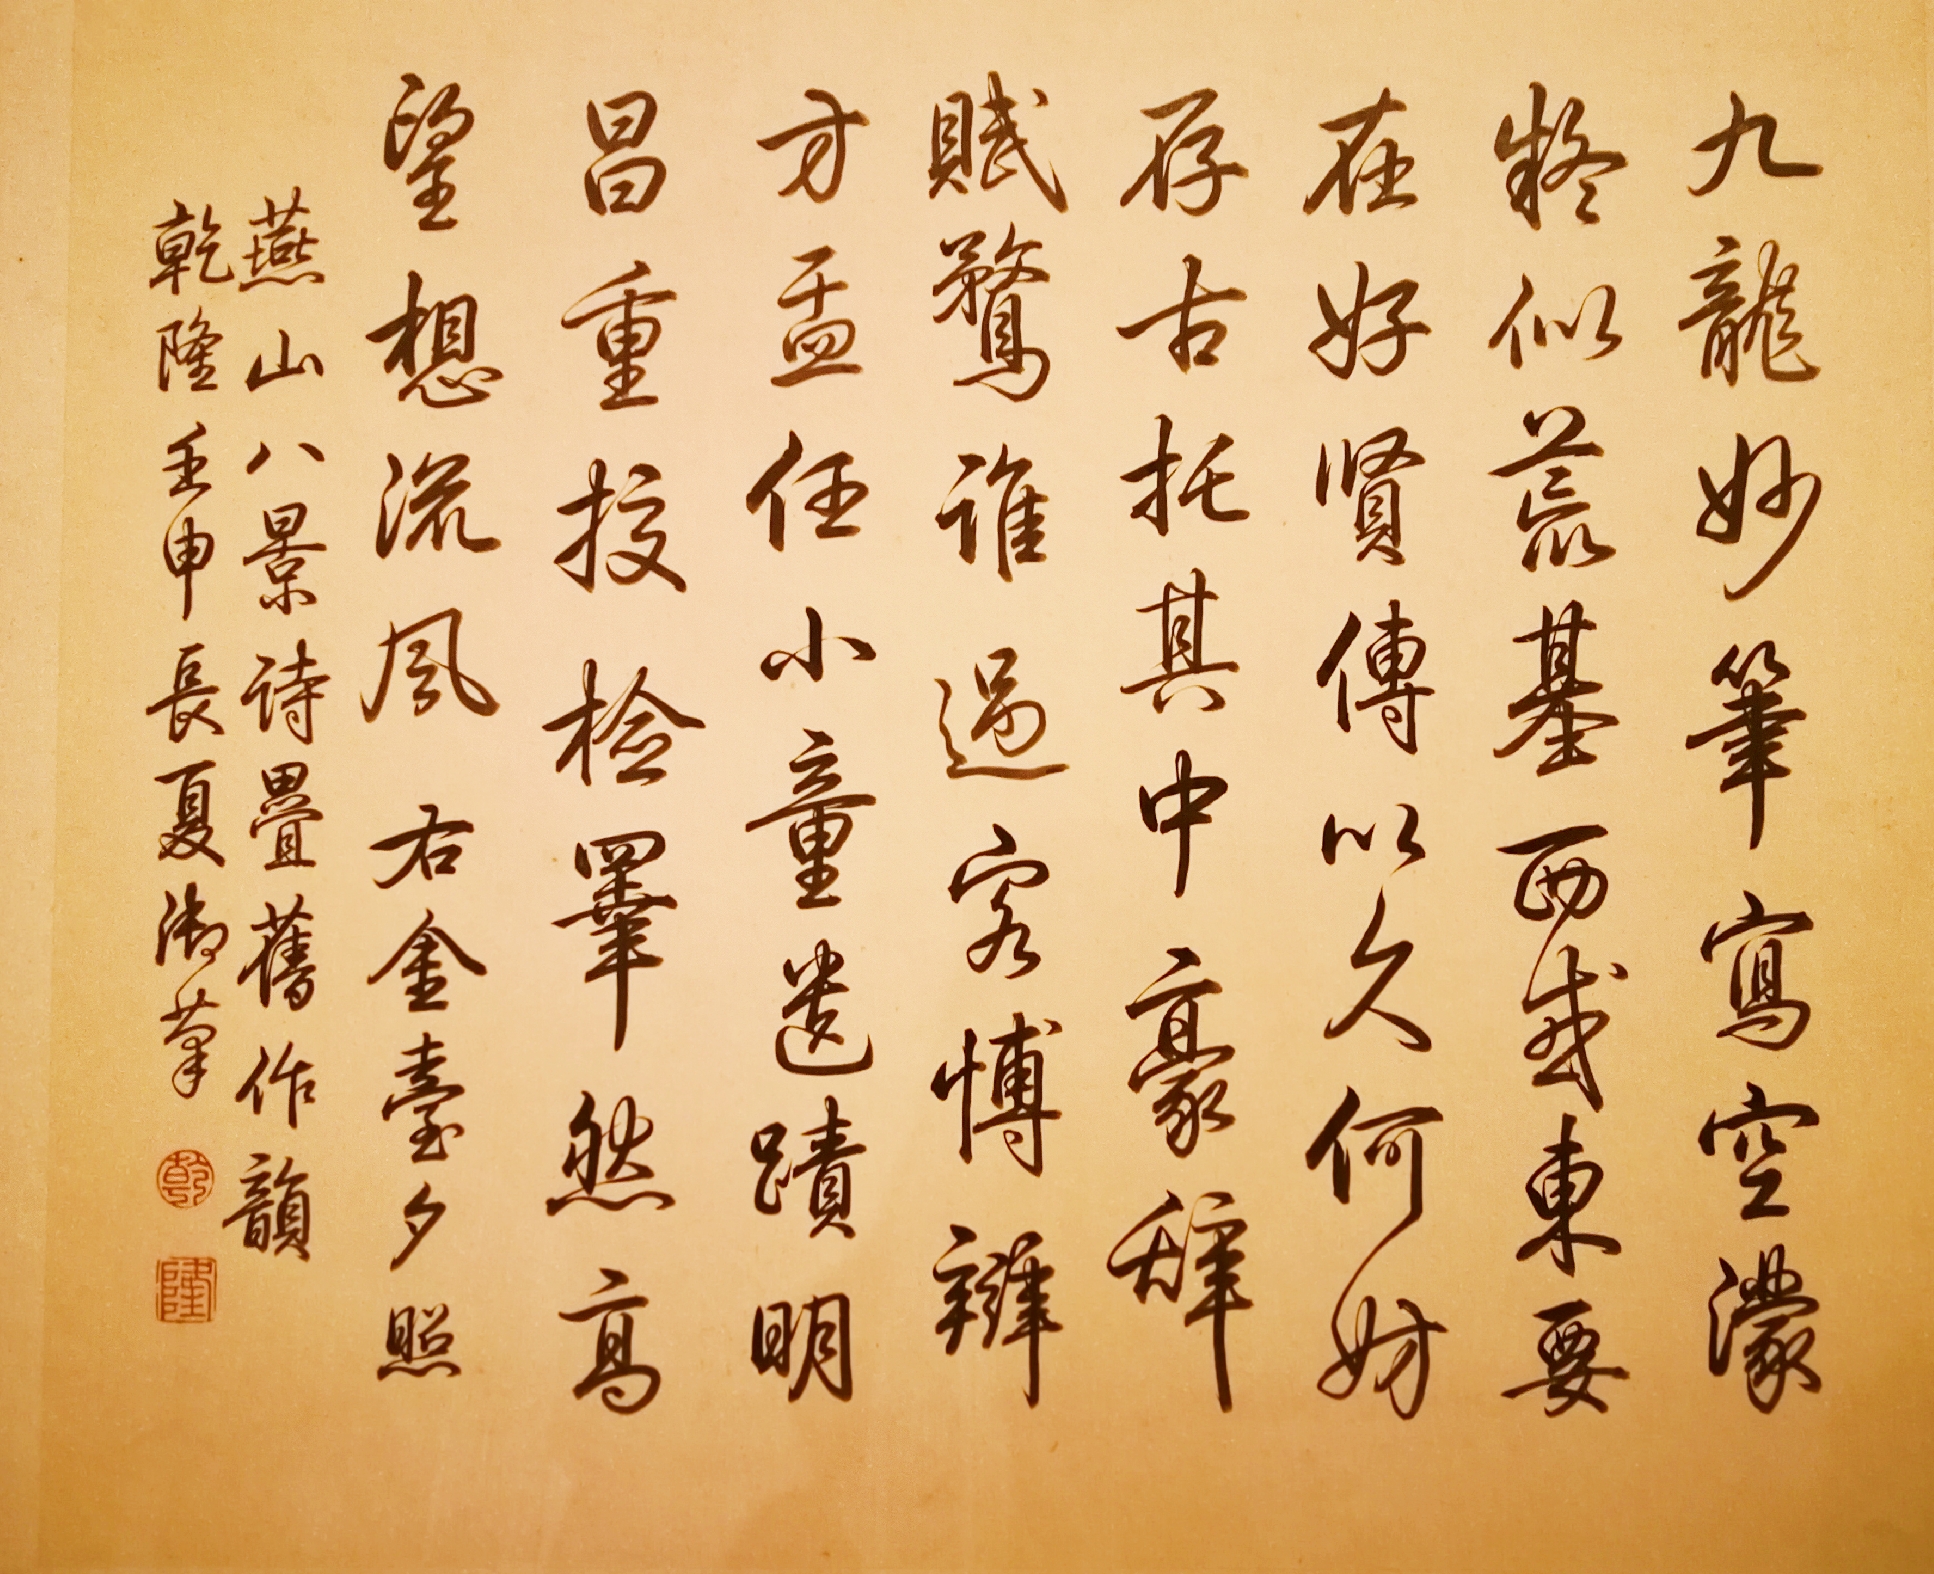 九龍妙筆寫空濛
疑似荒基西或東要
在好賢傳以久何妨
存古托其中豪辭
賦鶩誰過客愽辯
方盂任小童遺蹟明
昌重挍檢睪然高
望想流風 右金臺夕照
燕山八景詩疊舊作韻
乾隆壬申長夏御筆
乾
隆